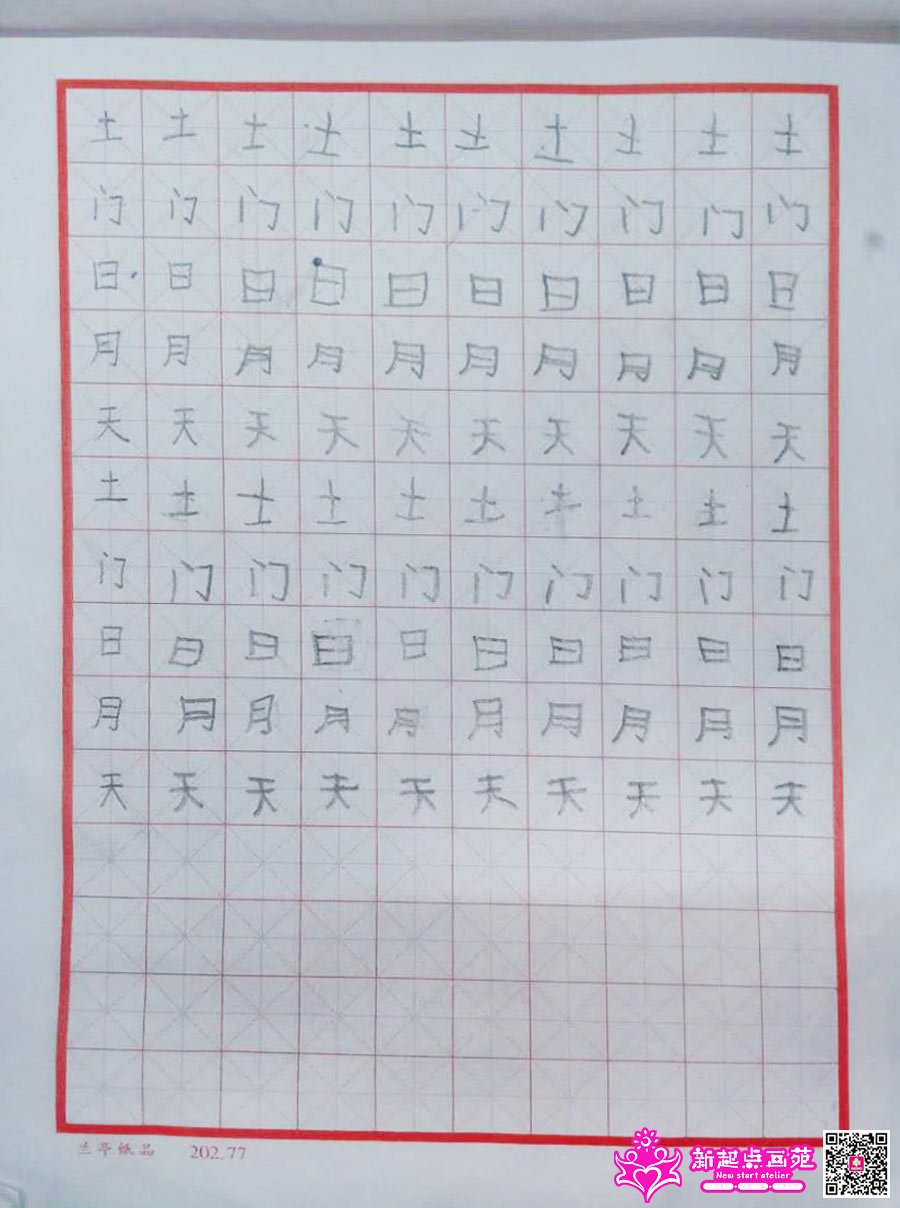 土 土 土 土 土 土 土 土 土 土
门 门 门 门 门 门 门 门 门 门
日 日 日 日 日 日 日 日 日 日
月 月 月 月 月 月 月 月 月 月
天 天 天 天 天 天 天 天 天 天
土 土 土 土 土 土 土 土 土 土
门 门 门 门 门 门 门 门 门 门
日 日 日 日 日 日 日 日 日 日
月 月 月 月 月 月 月 月 月 月
天 天 天 天 天 天 天 天 天 天
兰亭纸品 202.77
新起点画苑
New start atelier